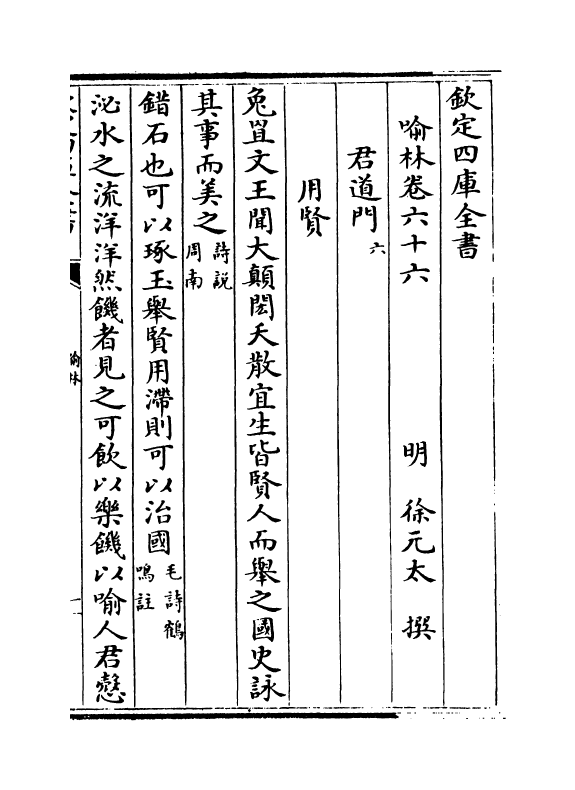 欽定四庫全書
喻林卷六十六　明　徐元太　撰
君道門六
用賢
兔罝文王聞大顛閎夭散宜生皆賢人而舉之國史詠
其事而美之詩説周南
錯石也可以琢玉舉賢用滯則可以治國毛詩鶴鳴註
泌水之流洋洋然饑者見之可飲以樂饑以喻人君慤
喻林